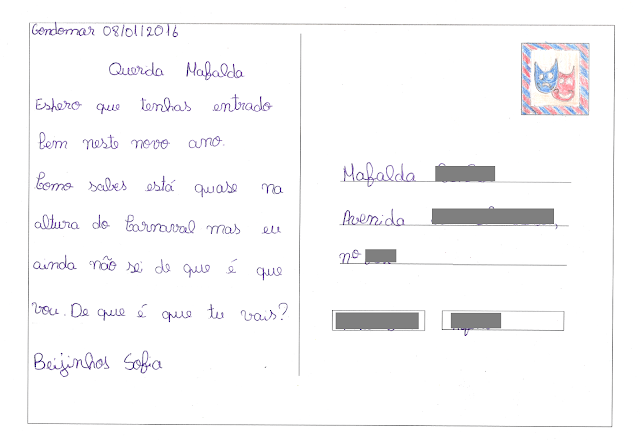 Gondomar 08/01/2016
Querida Mafalda
Espero que tenhas entrado
bem neste novo ano.
Como sabes está quase na
altura do Carnaval mas eu
ainda não sei de que é que
vou. De que é que tu vais?
Beijinhos Sofia
Mafalda
Avenida
nº